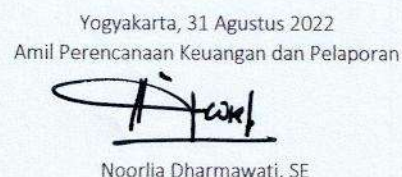 Yogyakarta, 31 Agustus 2022
Amil Perencanaan Keuangan dan Pelaporan
Noorlia Dharmawati, SE